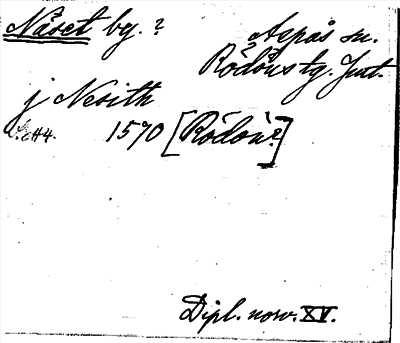 Näset by.? Aspås sn.
Rödöns tg. Jmt.
j Nesith
S. 244. 1570 [Rödön?]
Dipl. norv. XV.